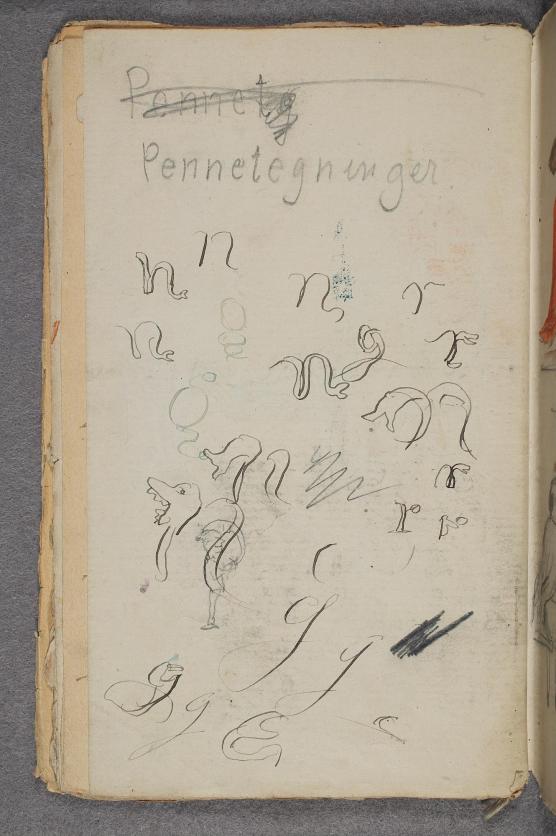 Pennetg
Pennetegninger.
n n
n r
n
n g r
r
r r
g
g
g